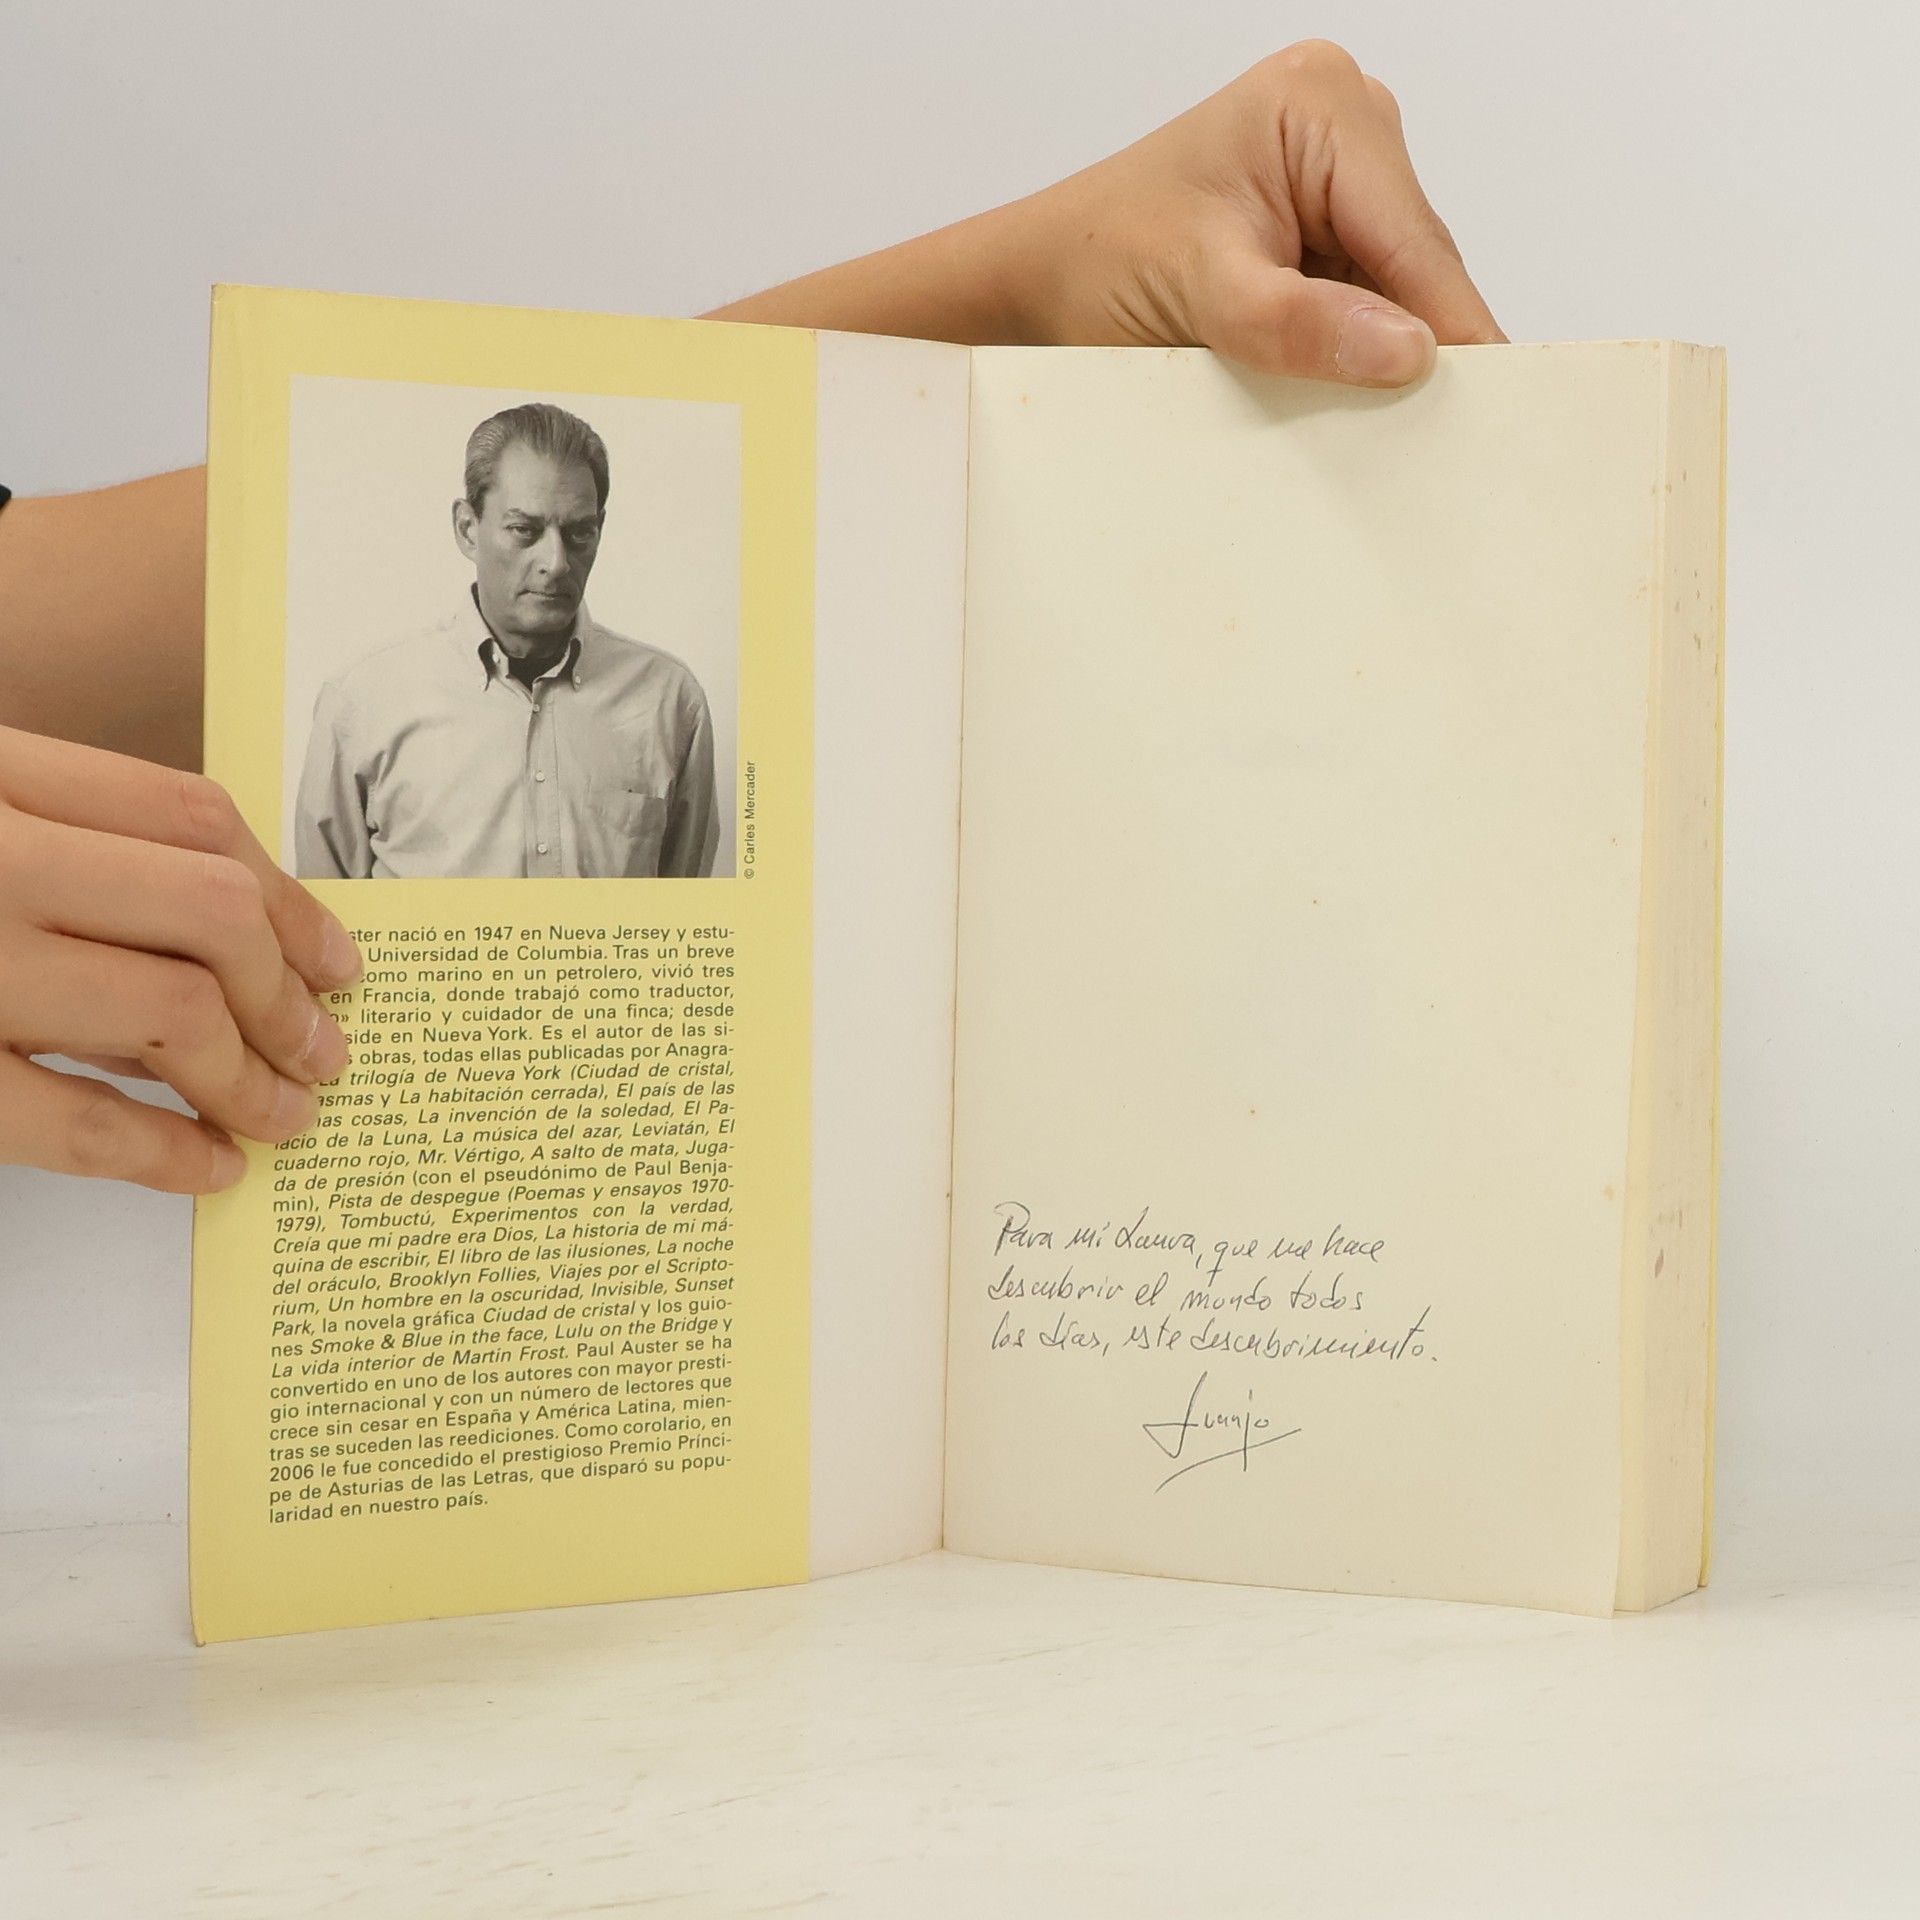 © Carles Mercader
ster nació en 1947 en Nueva Jersey y estu-
Universidad de Columbia. Tras un breve
como marino en un petrolero, vivió tres
en Francia, donde trabajó como traductor,
o» literario y cuidador de una finca; desde
side en Nueva York. Es el autor de las si-
s obras, todas ellas publicadas por Anagra-
La trilogía de Nueva York (Ciudad de cristal,
asmas y La habitación cerrada), El país de las
mas cosas, La invención de la soledad, El Pa-
lacio de la Luna, La música del azar, Leviatán, El
cuaderno rojo, Mr. Vértigo, A salto de mata, Juga-
da de presión (con el pseudónimo de Paul Benja-
min), Pista de despegue (Poemas y ensayos 1970-
1979), Tombuctú, Experimentos con la verdad,
Creía que mi padre era Dios, La historia de mi má-
quina de escribir, El libro de las ilusiones, La noche
del oráculo, Brooklyn Follies, Viajes por el Scripto-
rium, Un hombre en la oscuridad, Invisible, Sunset
Park, la novela gráfica Ciudad de cristal y los guio-
nes Smoke & Blue in the face, Lulu on the Bridge y
La vida interior de Martin Frost. Paul Auster se ha
convertido en uno de los autores con mayor presti-
gio internacional y con un número de lectores que
crece sin cesar en España y América Latina, mien-
tras se suceden las reediciones. Como corolario, en
2006 le fue concedido el prestigioso Premio Prínci-
pe de Asturias de las Letras, que disparó su popu-
laridad en nuestro país.
Para mi Laura, que me hace
descubrir el mundo todos
los días, este descubrimiento.
Juanjo